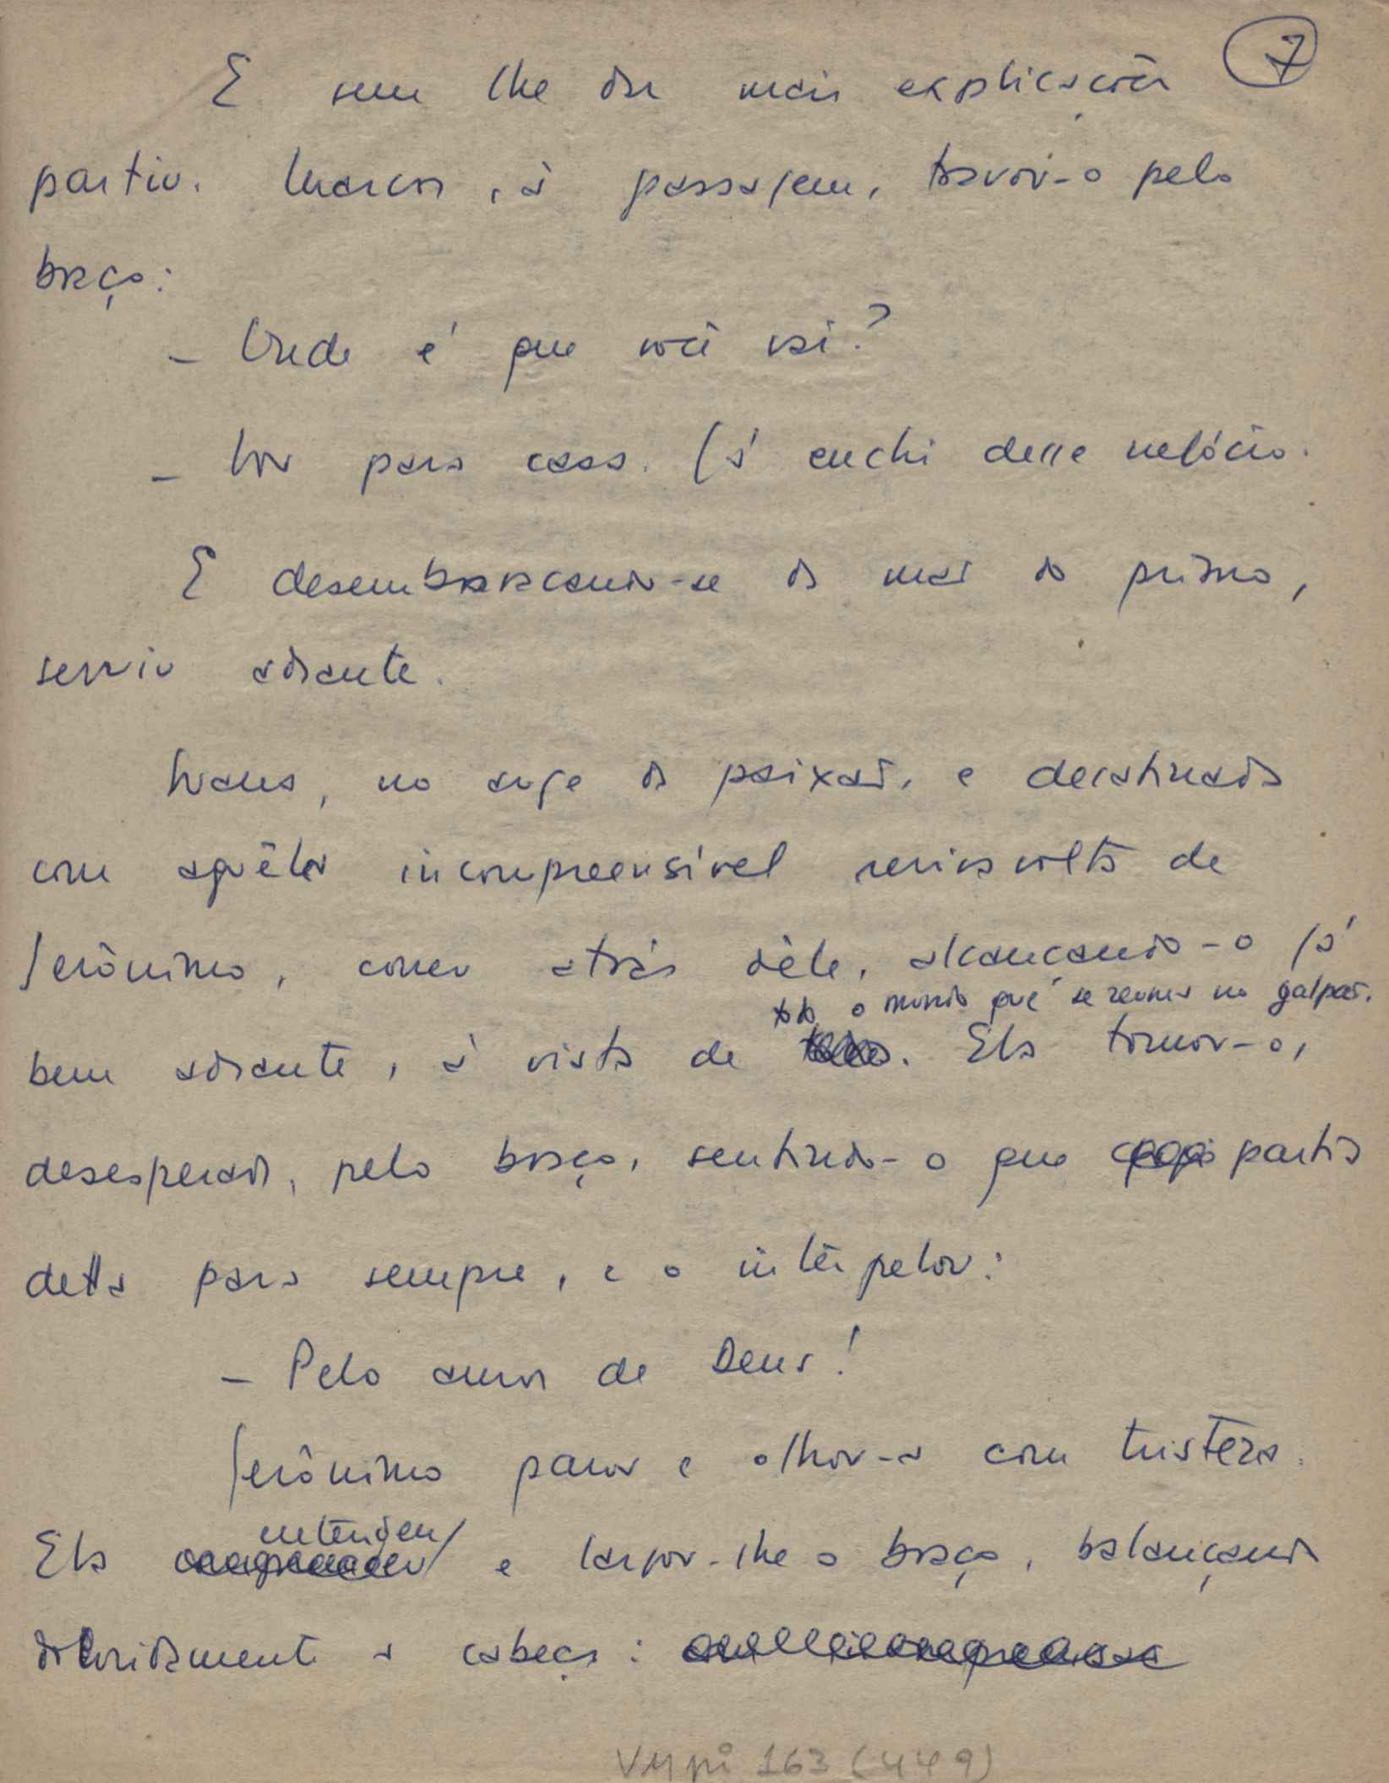 7
E sem lhe dar mais explicações
partiu. Marcos, à passagem, travou-o pelo
braço:
– Onde é que você vai?
– Vou para casa. Já enchi desse negócio.
E desembaraçando-se da mão do primo,
seguiu adiante.
no auge da paixão, e desatinada
com aquela incompreensível reviravolta de
Jerônimo, correu atrás dêle, alcançando-o já
todo o mundo que se reunia no galpão.
bem adiante, à vista de. Ela tomou-o,
desesperada, pelo braço, sentindo-o que partia
dela para sempre, e o interpelou:
– Pelo amor de Deus!
Jerônimo parou e olhou-a com tristeza.
entendeu
Ela e largou-lhe o braço, balançando
doloridamente a cabeça:
Vypi 163 (449)